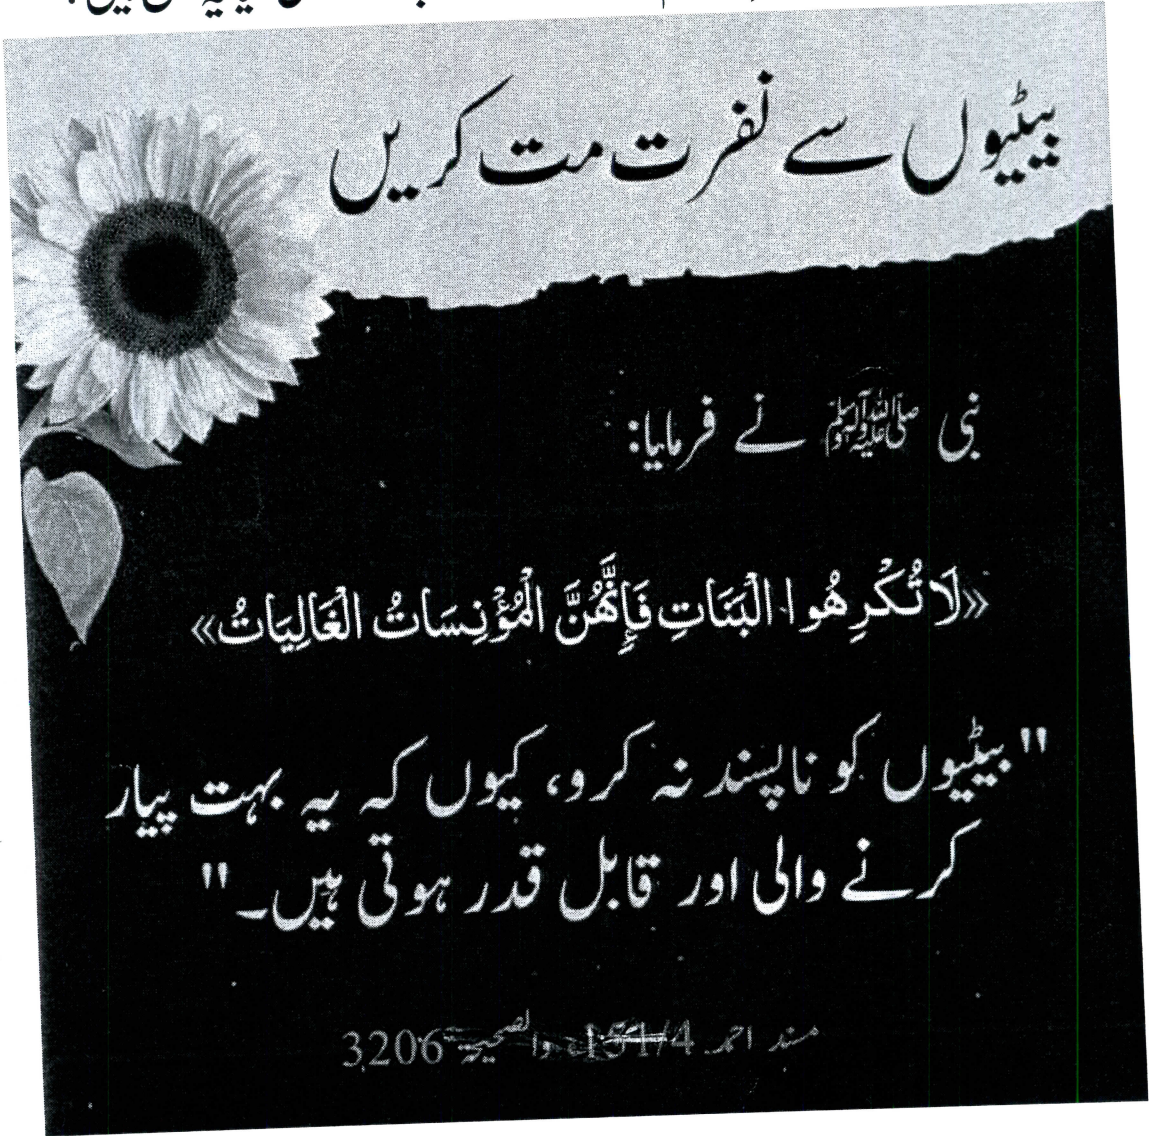 بیٹیوں سے نفرت مت کریں
نبی ﷺ نے فرمایا:
«لَا تُكْرِهُوا الْبَنَاتِ فَإِنَّهُنَّ الْمُؤْنِسَاتُ الْغَالِيَاتُ»
"بیٹیوں کو ناپسند نہ کرو، کیوں کہ یہ بہت پیار
کرنے والی اور قابل قدر ہوتی ہیں۔"
مسند احمد 151/4 والصحیحۃ 3206